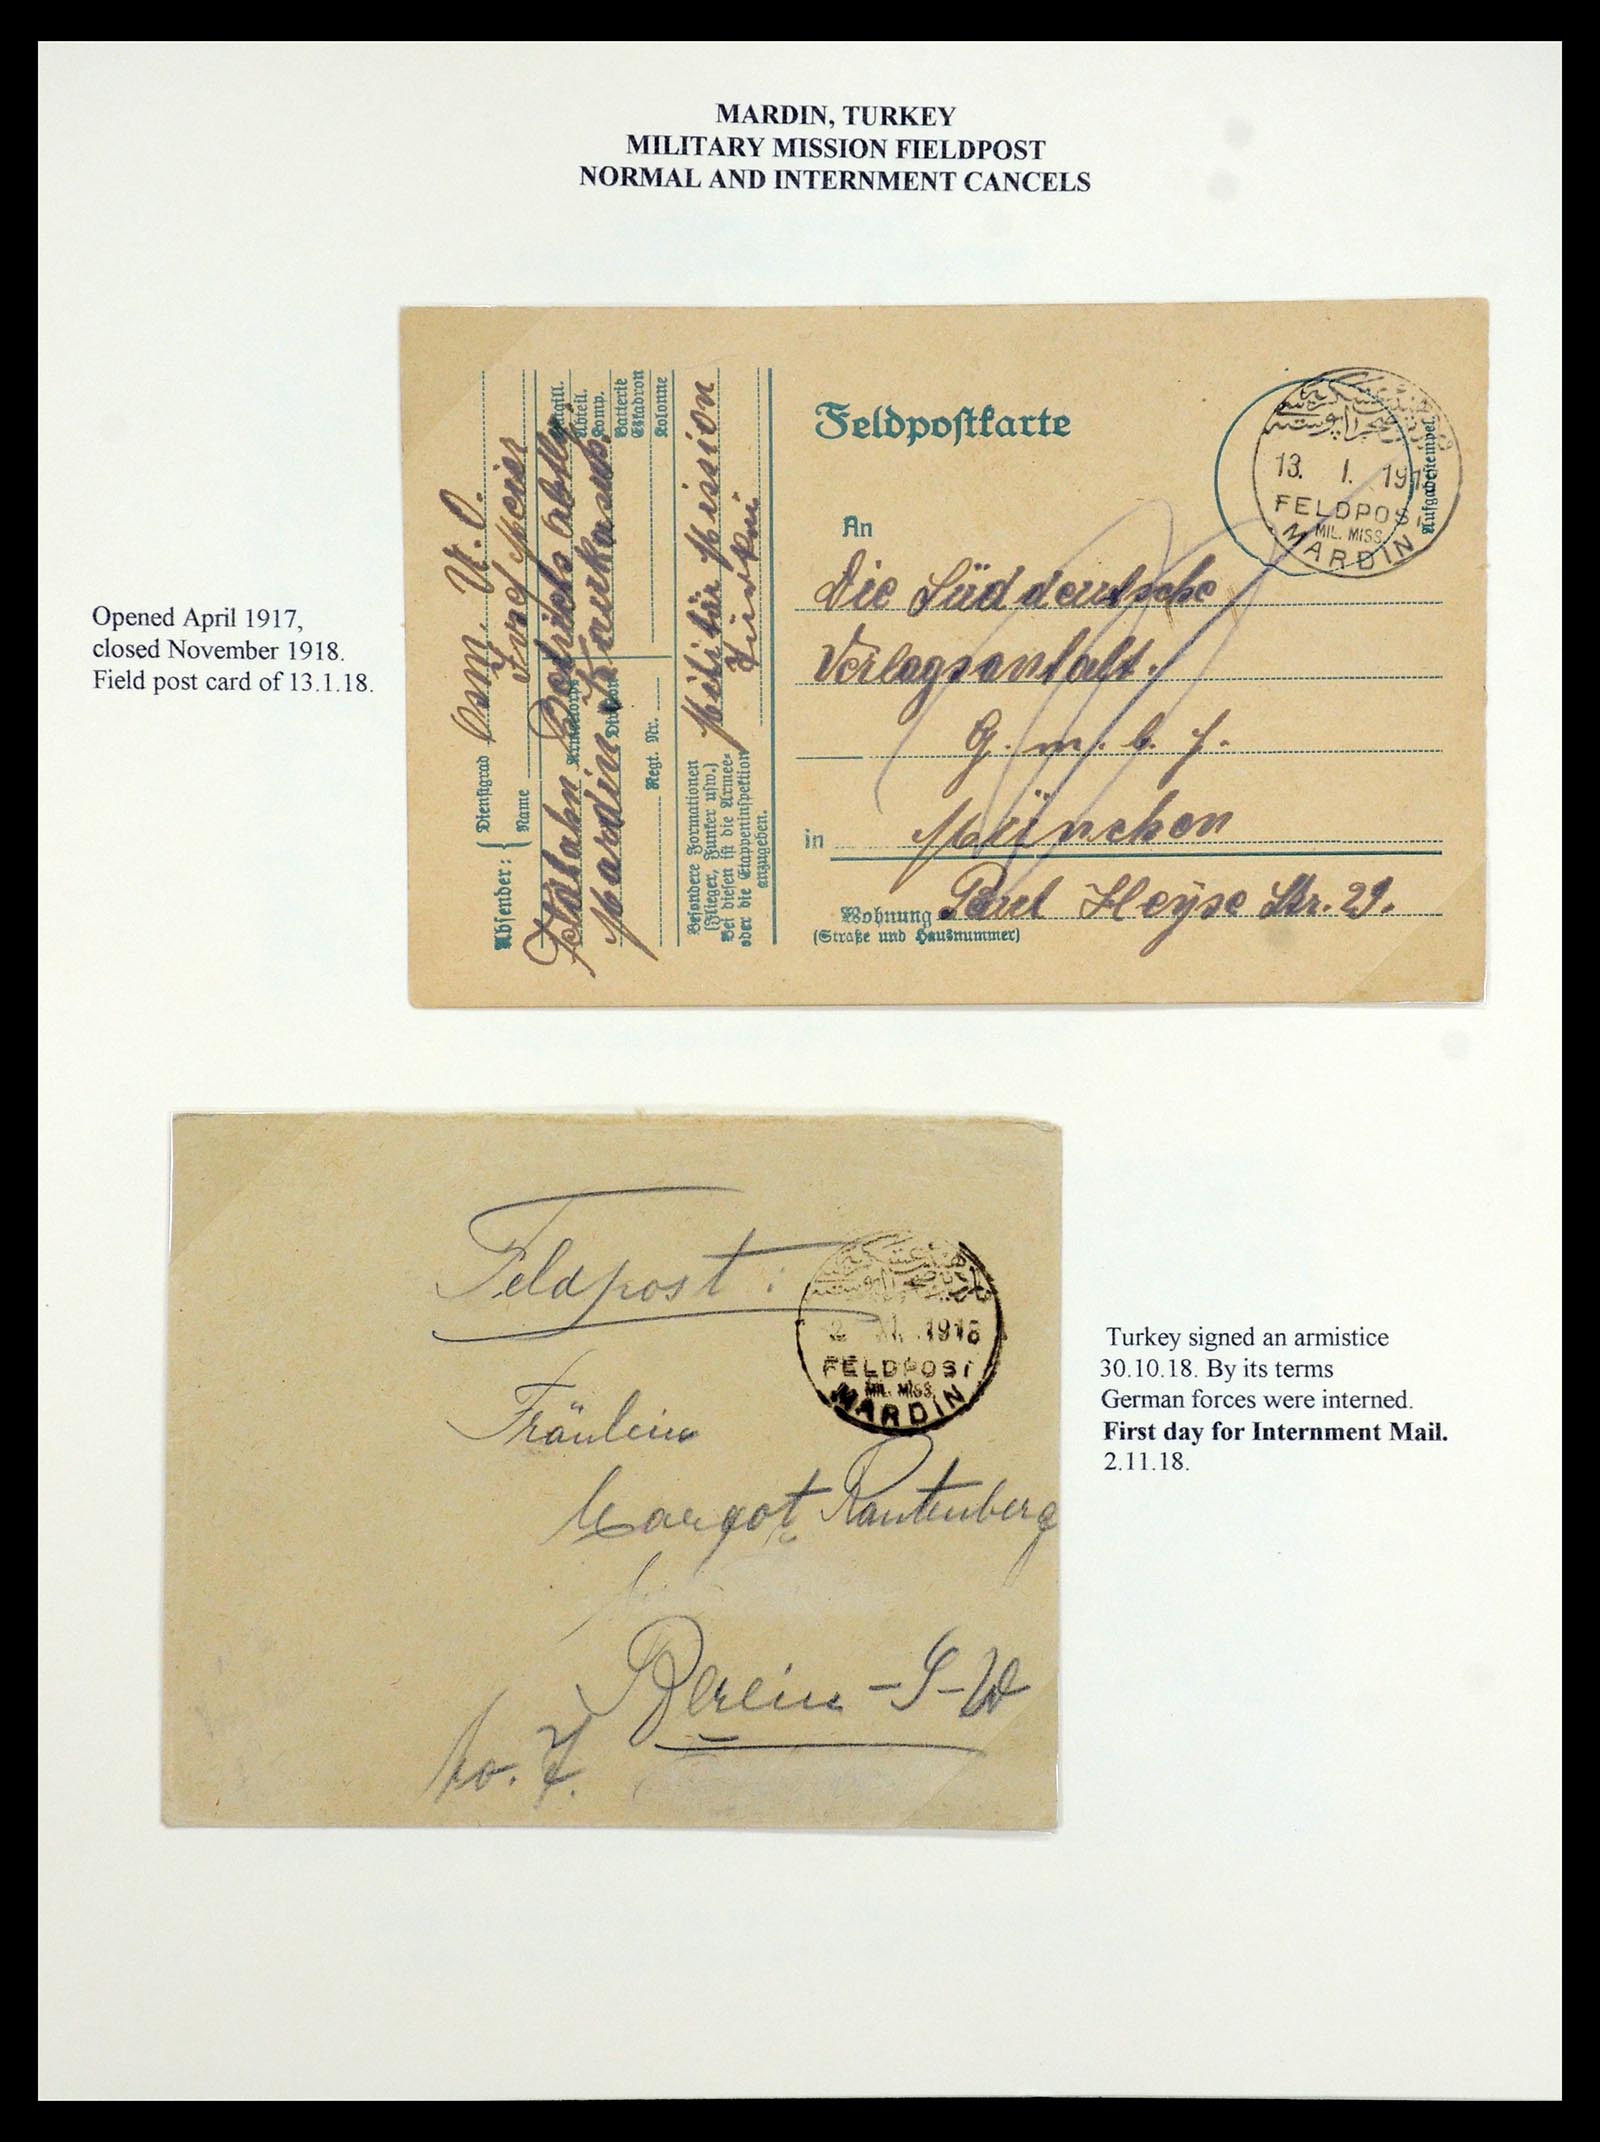 MARDIN, TURKEY
MILITARY MISSION FIELDPOST
NORMAL AND INTERNMENT CANCELS
Opened April 1917,
closed November 1918.
Field post card of 13.1.18.
Absender:
Dienstgrad
Name
Meier
Feldbahn Betriebs Abtlg.
Mardin
Armeekorps
Division
Regt. Nr.
Bataill.
Abteil.
Komp.
Batterie
Eskadron
Kolonne
Besondere Formationen
(Flieger, Funker usw.)
Bei diesen ist die Armee-
oder die Etappeninspektion
anzugeben.
Militär Mission
Türkei
Feldpostkarte
13. I. 191
FELDPOST
MIL. MISS.
MARDIN
Aufgabestempel
An
Die Süddeutsche
Verlagsanstalt.
G. m. b. H.
in München
Wohnung Paul Heyse Str. 29.
(Straße und Hausnummer)
Feldpost:
2 XI. 1918
FELDPOST
MIL. MISS.
MARDIN
Fräulein
Margot Rautenberg
Berlin-S-W
Turkey signed an armistice
30.10.18. By its terms
German forces were interned.
First day for Internment Mail.
2.11.18.